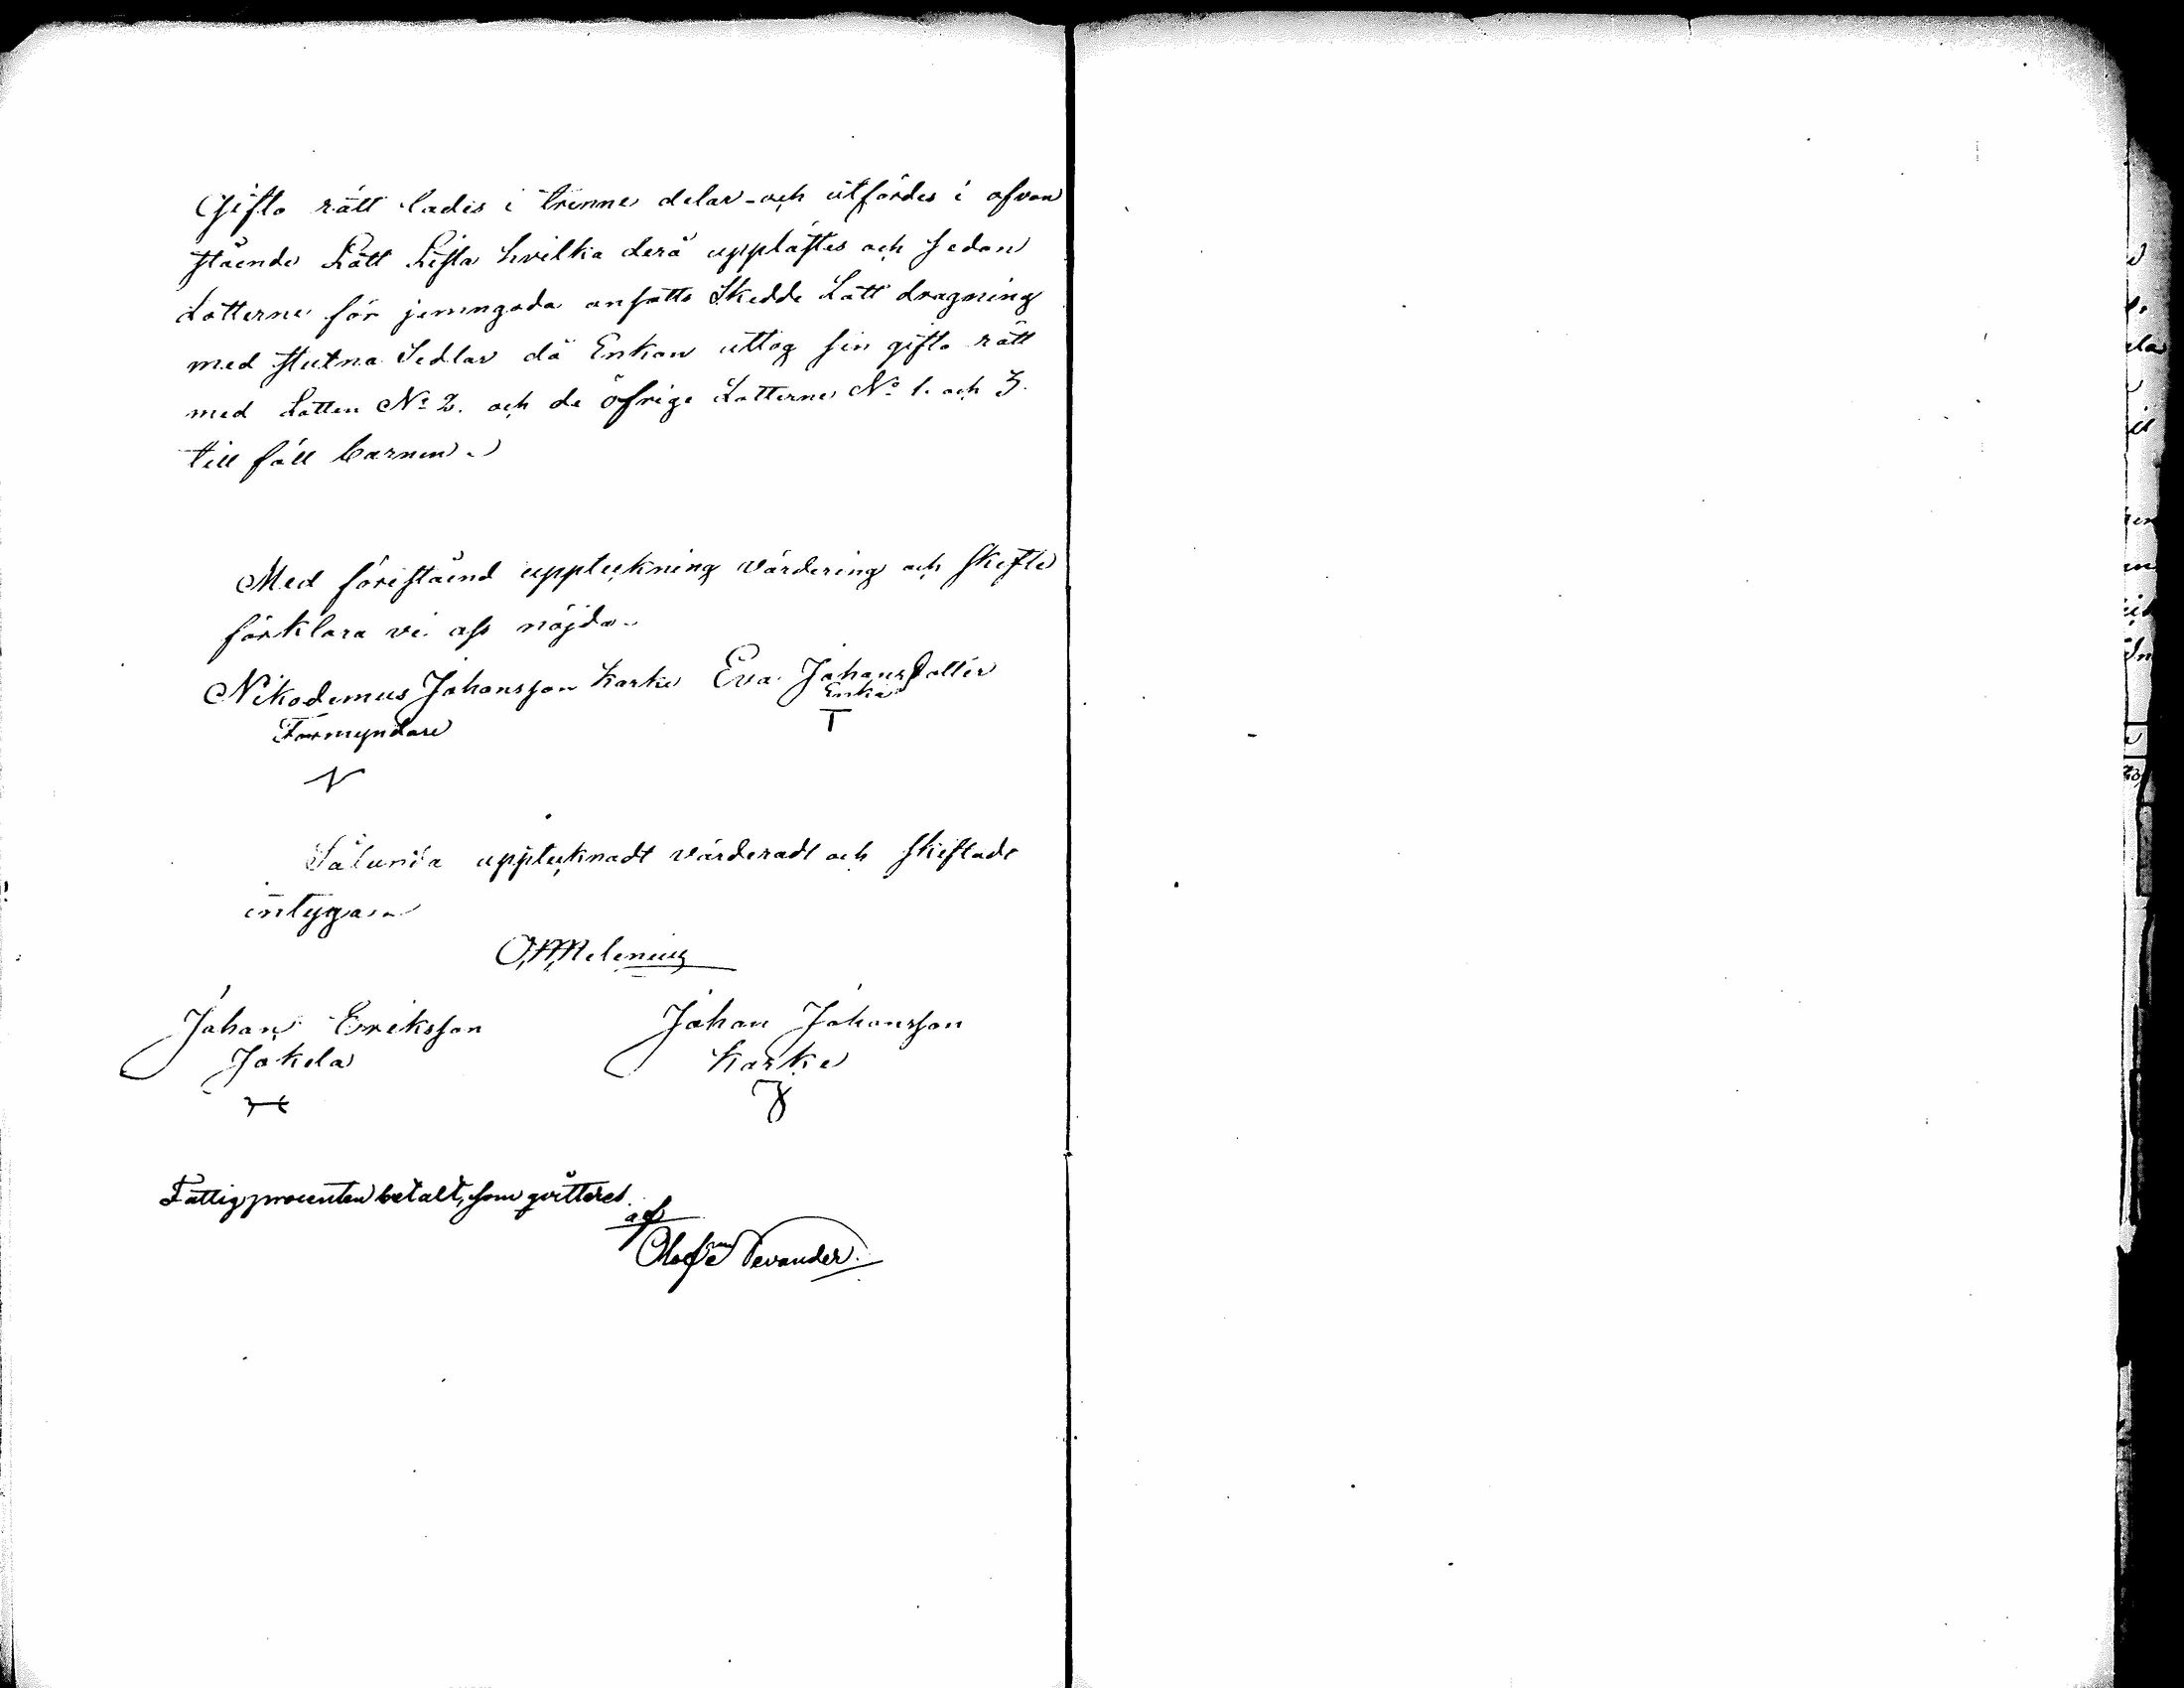 Gifto rätt lades i trenne delar och utfördes i ofvan
stående Lott Lista hvilka derå upplästes och sedan
Lotterne för jemngoda ansatts Skedde Lott dragning
med slutna Sedlar då Enkan uttog sin gifto rätt
med Lotten No 2. och de öfrige Lotterne No 1. och 3.
till föll barnen.
Med föreståend uppteckning värdering och skifte
förklara vi oss nöjda.
Nikodemus Johansson Karke Eva Johans Dotter
Enka
Förmyndare
T
N
Sålunda upptecknadt värderadt och skiftadt
intygar
Melenius
Johan Eriksson Johan Johansson
Jakela Karke
Fattigprocenten betalt, som qvitteras
af
Olof Tevander